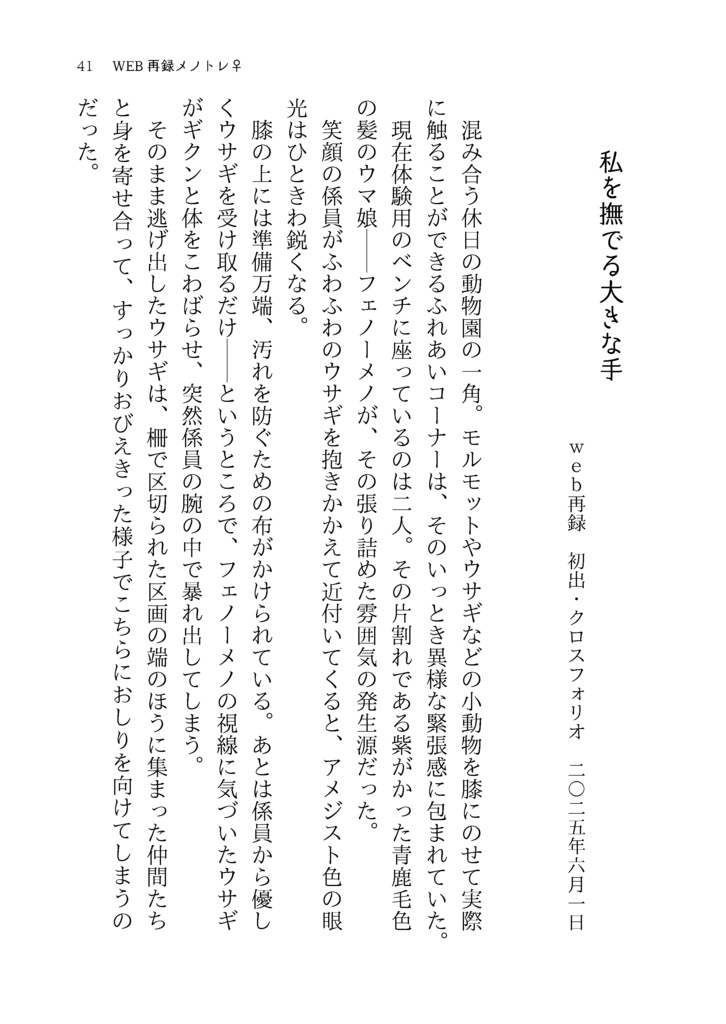 41 WEB再録メノトレ♀
私を撫でる大きな手
web再録 初出・クロスフォリオ 二〇二五年六月一日
混み合う休日の動物園の一角。モルモットやウサギなどの小動物を膝にのせて実際
に触ることができるふれあいコーナーは、そのいっとき異様な緊張感に包まれていた。
現在体験用のベンチに座っているのは二人。その片割れである紫がかった青鹿毛色
の髪のウマ娘――フェノーメノが、その張り詰めた雰囲気の発生源だった。
笑顔の係員がふわふわのウサギを抱きかかえて近付いてくると、アメジスト色の眼
光はひときわ鋭くなる。
膝の上には準備万端、汚れを防ぐための布がかけられている。あとは係員から優し
くウサギを受け取るだけ――というところで、フェノーメノの視線に気づいたウサギ
がギクンと体をこわばらせ、突然係員の腕の中で暴れ出してしまう。
そのまま逃げ出したウサギは、柵で区切られた区画の端のほうに集まった仲間たち
と身を寄せ合って、すっかりおびえきった様子でこちらにおしりを向けてしまうの
だった。